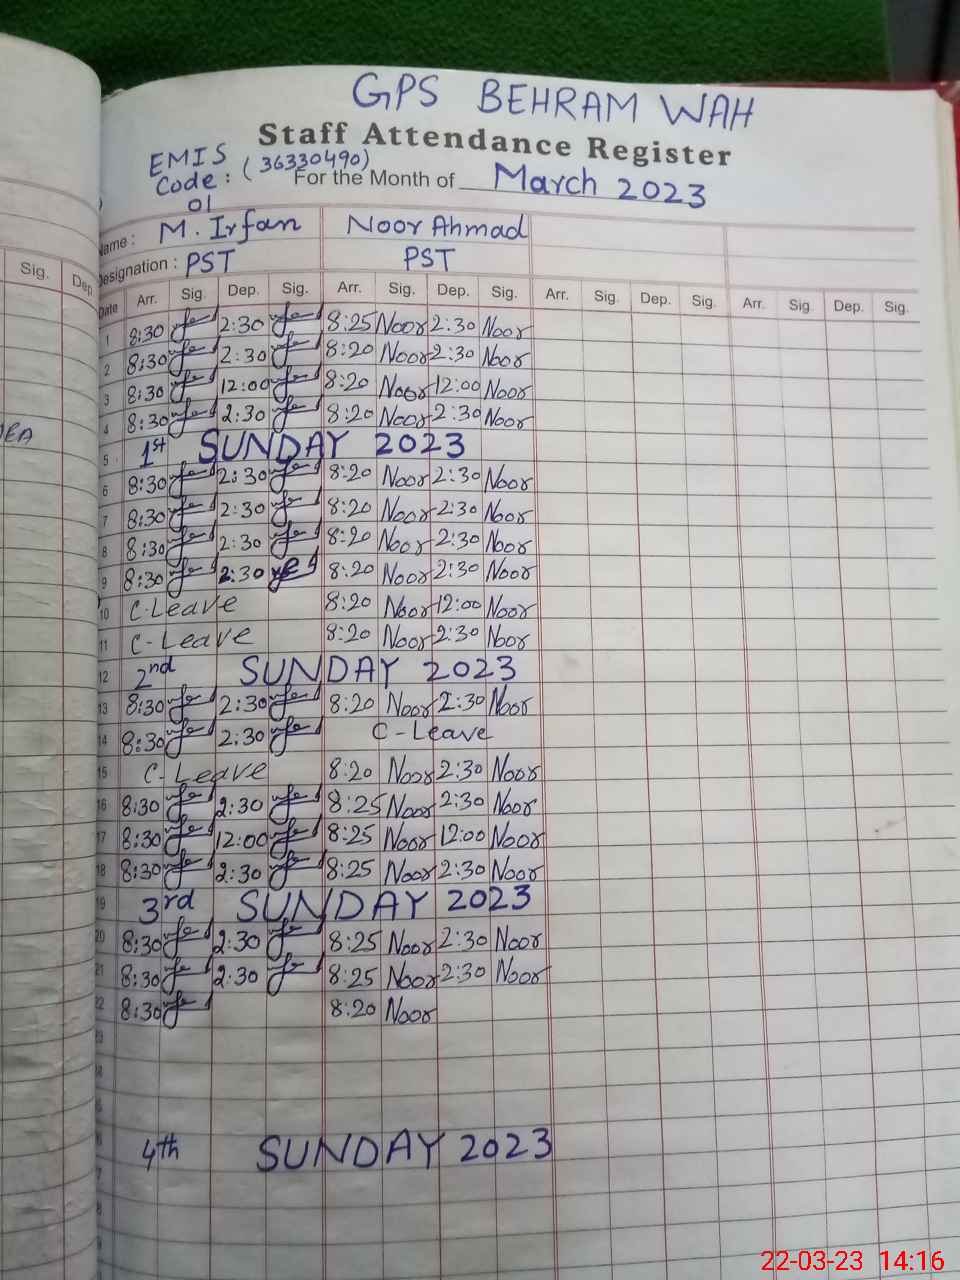 GPS BEHRAM WAH
Staff Attendance Register
EMIS Code: (36330490)
For the Month of March 2023
01
Name: M. Irfan Noor Ahmad
Designation: PST PST
Sig. Dep.
Date Arr. Sig. Dep. Sig. Arr. Sig. Dep. Sig. Arr. Sig. Dep. Sig. Arr. Sig. Dep. Sig.
1 8:30 2:30 8:25 Noor 2:30 Noor
2 8:30 2:30 8:20 Noor 2:30 Noor
3 8:30 12:00 8:20 Noor 12:00 Noor
4 8:30 2:30 8:20 Noor 2:30 Noor
5 1st SUNDAY 2023
6 8:30 2:30 8:20 Noor 2:30 Noor
7 8:30 2:30 8:20 Noor 2:30 Noor
8 8:30 2:30 8:20 Noor 2:30 Noor
9 8:30 2:30 8:20 Noor 2:30 Noor
10 C-Leave 8:20 Noor 12:00 Noor
11 C-Leave 8:20 Noor 2:30 Noor
12 2nd SUNDAY 2023
13 8:30 2:30 8:20 Noor 2:30 Noor
14 8:30 2:30 C-Leave
15 C-Leave 8:20 Noor 2:30 Noor
16 8:30 2:30 8:25 Noor 2:30 Noor
17 8:30 12:00 8:25 Noor 12:00 Noor
18 8:30 2:30 8:25 Noor 2:30 Noor
19 3rd SUNDAY 2023
20 8:30 2:30 8:25 Noor 2:30 Noor
21 8:30 2:30 8:25 Noor 2:30 Noor
22 8:30 8:20 Noor
23
4th SUNDAY 2023
22-03-23 14:16